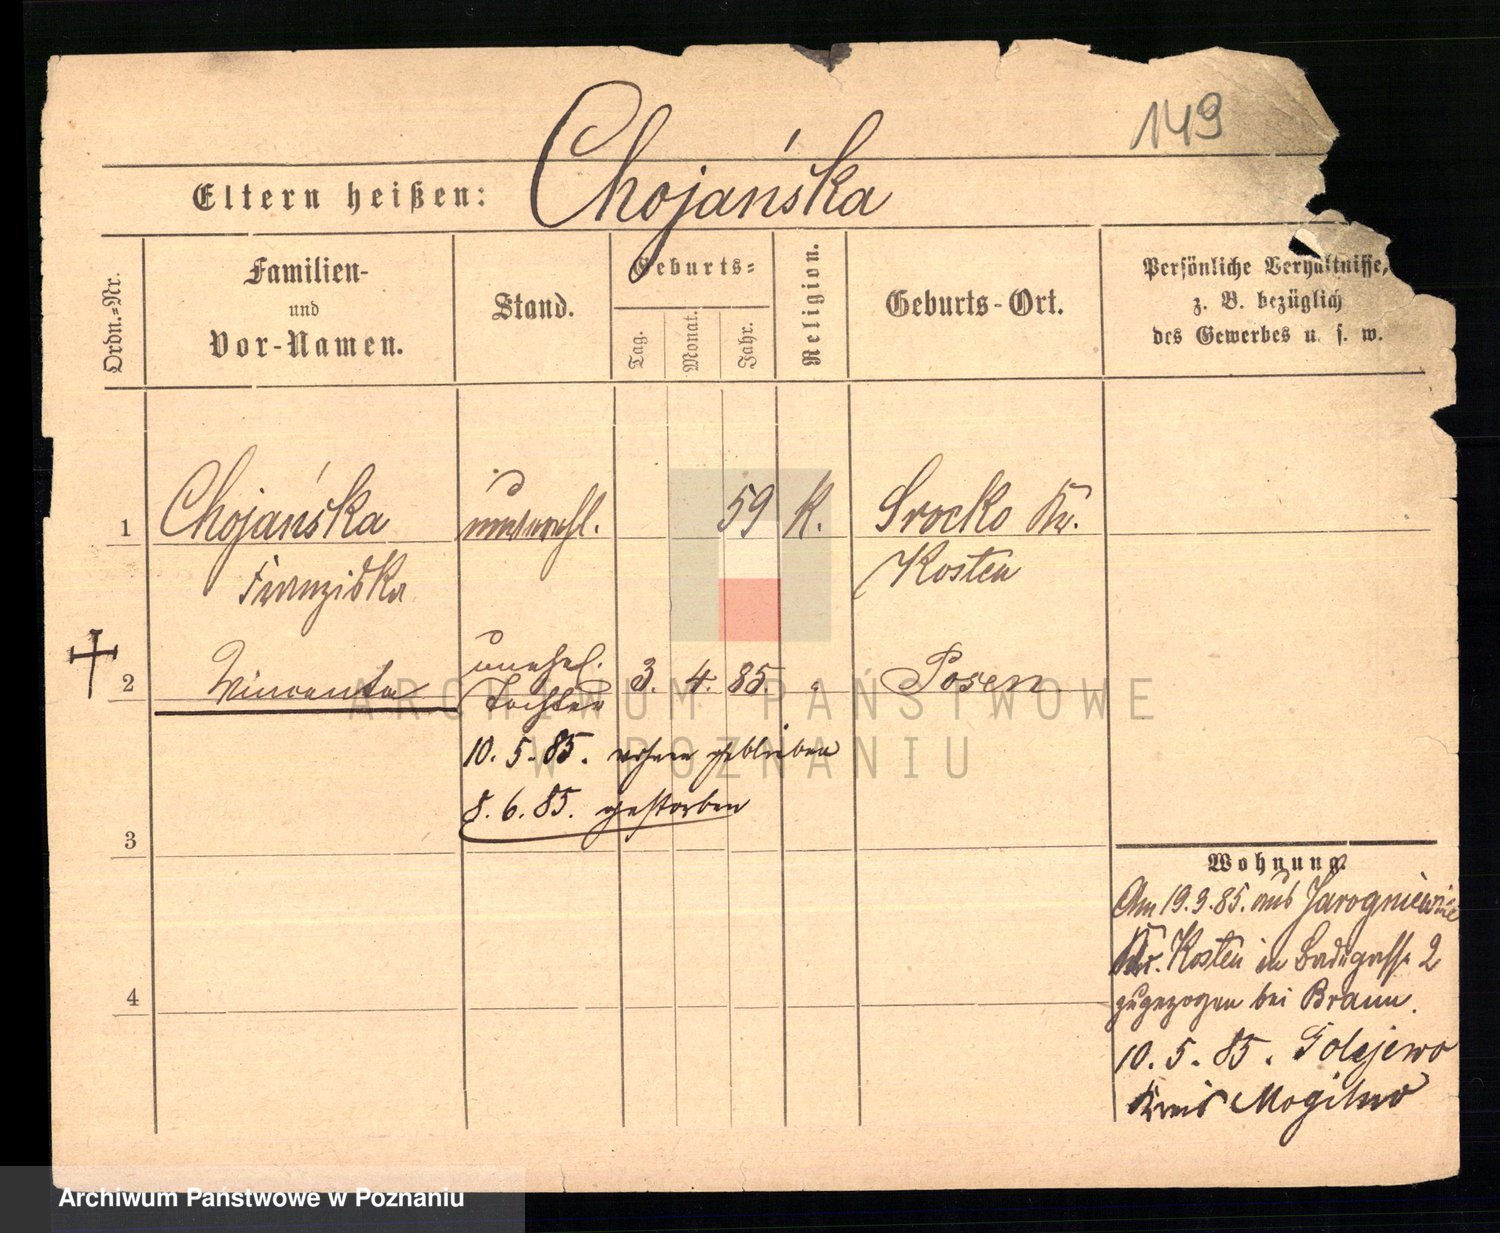 149
Eltern heißen: Chojańska
Ordn.-Nr.
Familien-
und
Vor-Namen.
Stand.
Geburts-
Tag.
Monat.
Jahr.
Religion.
Geburts-Ort.
Persönliche Verhältnisse,
z. B. bezüglich
des Gewerbes u. s. w.
1 Chojańska unverehl. 59 K. Srocko Kr.
Franziska Kosten
2 Wincenta unehel. 3. 4. 85. " Posen
Tochter
10. 5. 85. geblieben
8. 6. 85. gestorben
3
4
Wohnung.
Am 19.9.85. aus Jarogniewice
Kr. Kosten in Badegasse 2
zugezogen bei Braun.
10. 5. 85. Golejewo
Kreis Mogilno
ARCHIWUM PAŃSTWOWE
W POZNANIU
Archiwum Państwowe w Poznaniu